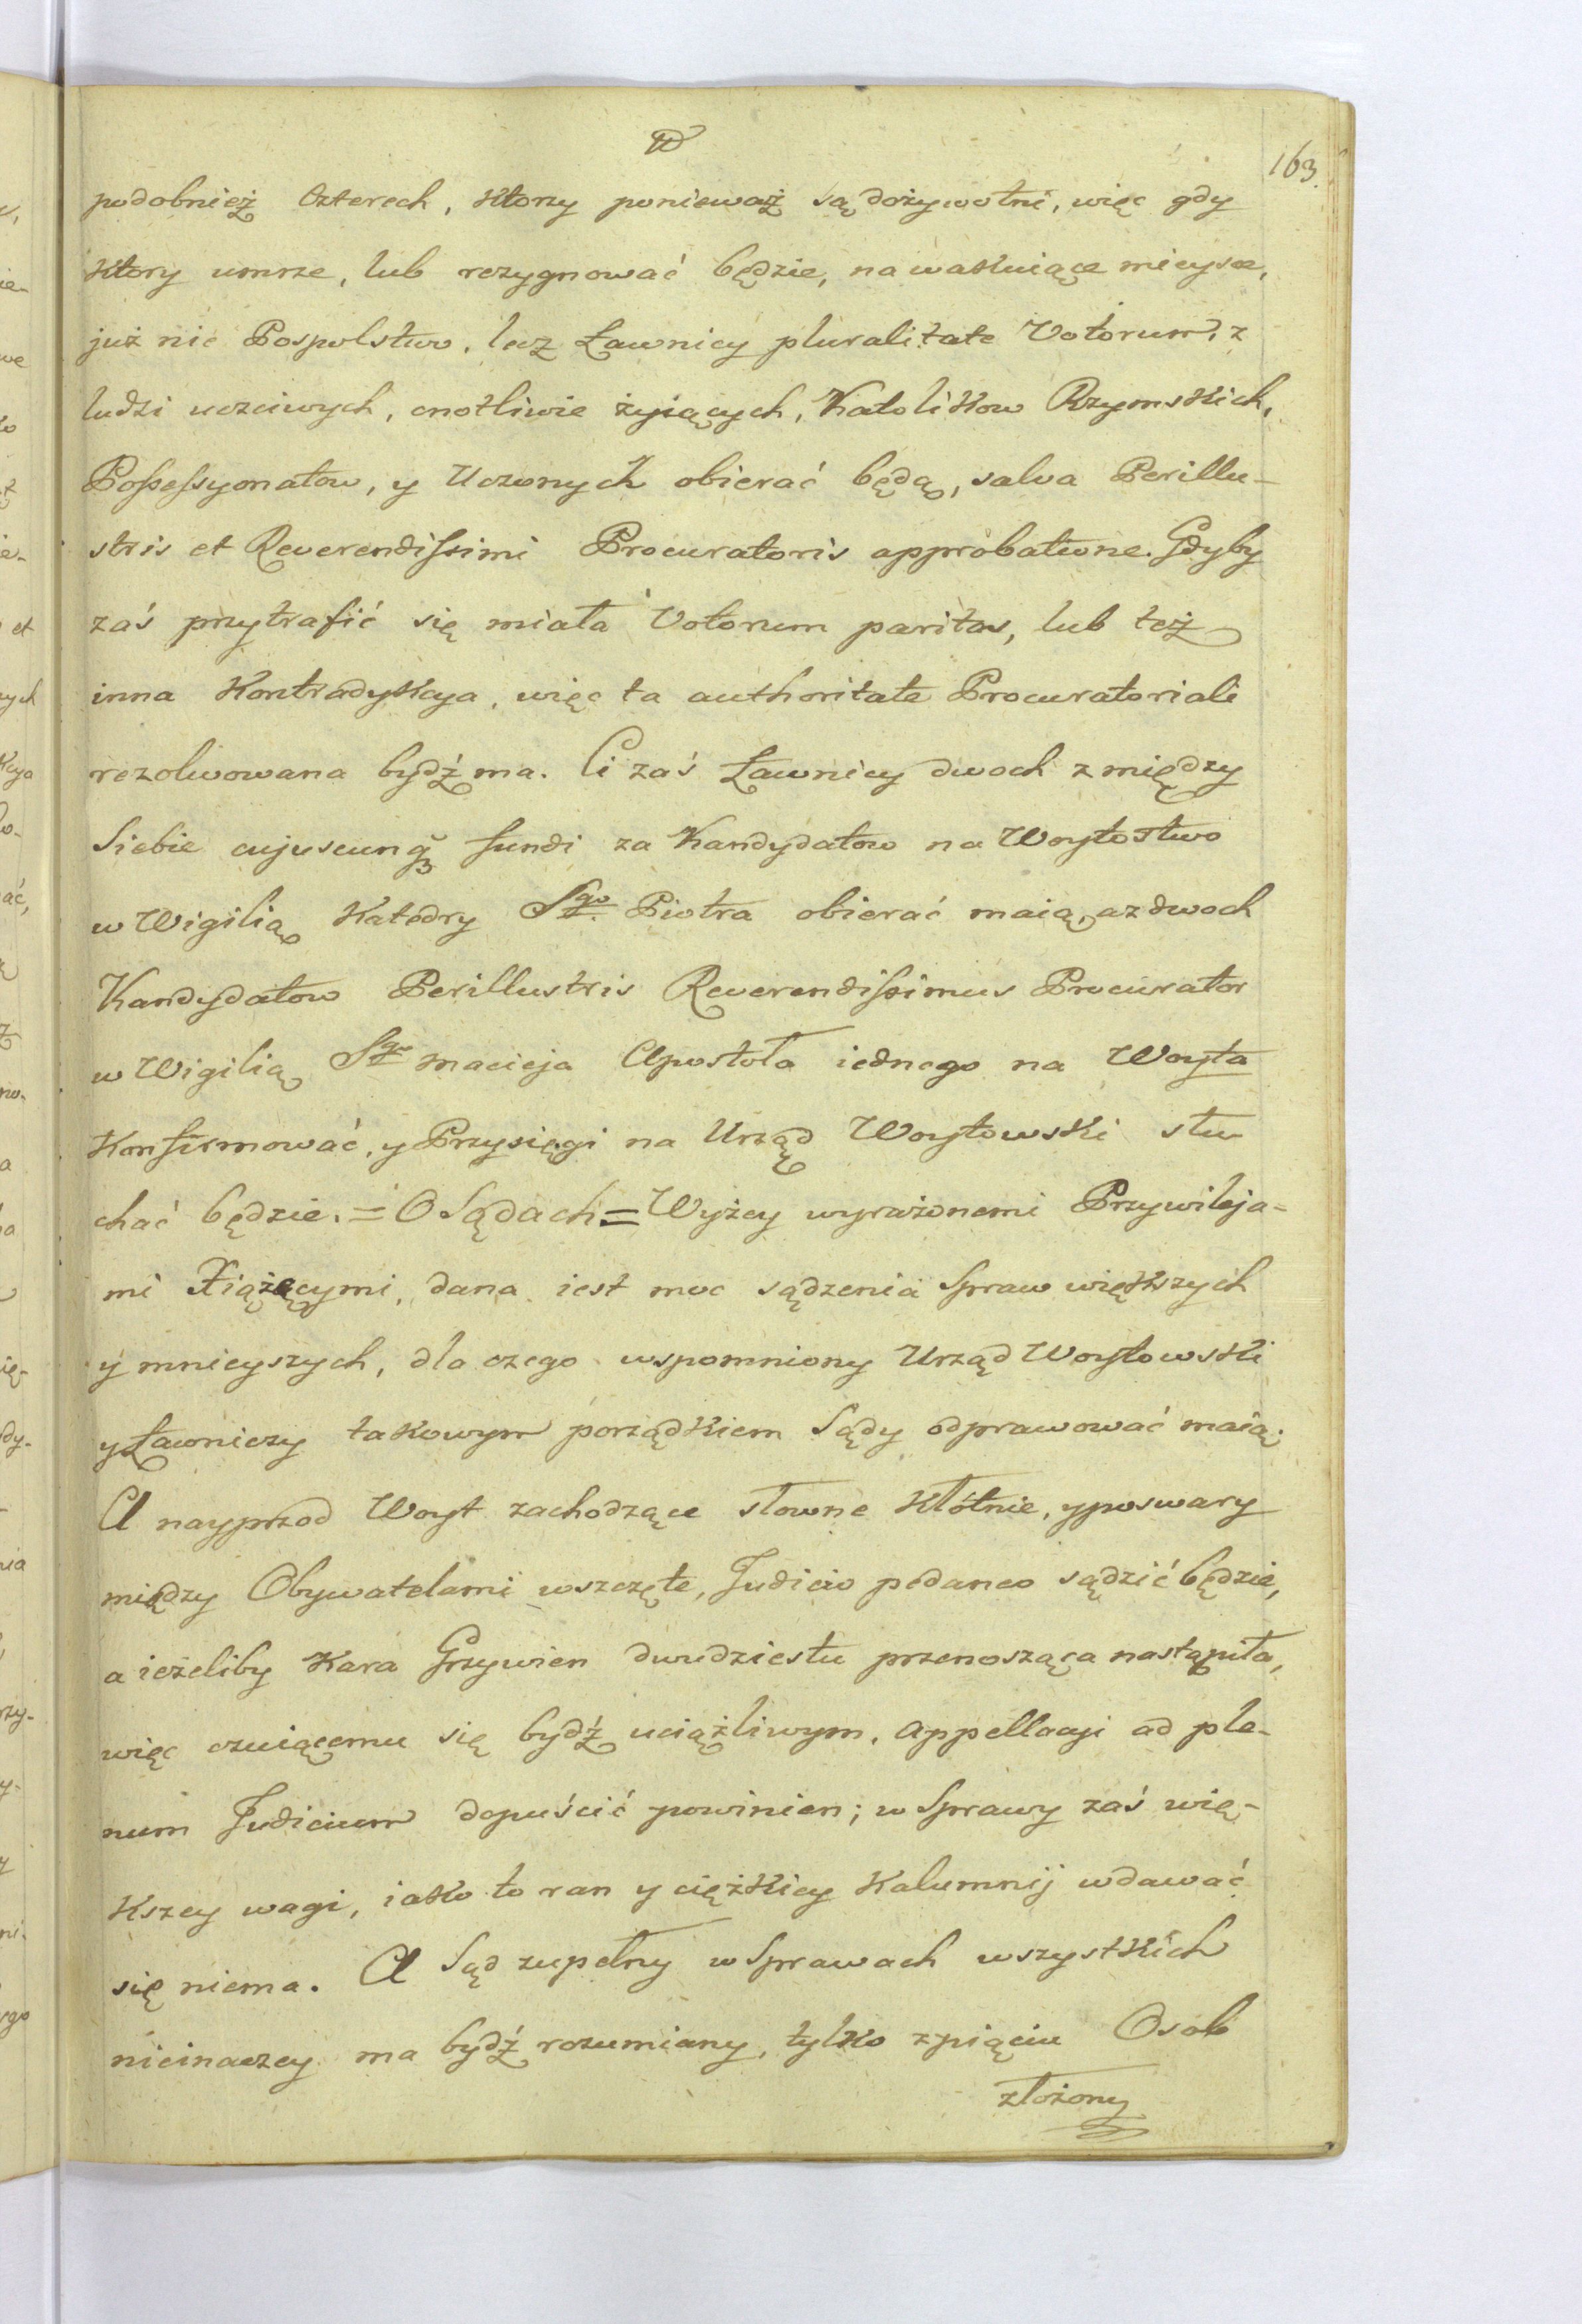 163.
podobnież Czterech, Ktorzy ponieważ są dożywotni, więc gdy
Ktory umrze, lub rezygnować będzie, na wakuiące mieysce,
już nie Pospolstwo, lecz Ławnicy pluralitate Votorum, z
ludzi uczciwych, cnotliwie żyiących, Katolikow Rzymskich,
Poſseſsyonatow, y Uczonych obierać będą, salva Perillu-
stris et Reverendiſsimi Procuratoris approbatione. Gdyby
zaś przytrafić się miała Votorum paritas, lub też
inna Kontradykcya, więc ta authoritate Procuratoriali
rezolwowana bydź ma. Ci zaś Ławnicy dwoch z między
Siebie cujuscunq fundi za Kandydatow na Woytostwo
w Wigilią Katedry Sgo Piotra obierać maią, a z dwoch
Kandydatow Perillustris Reverendiſsimus Procurator
w Wigilią Sgo Macieja Apostoła iednego na Woyta
Konfirmować, y Przysięgi na Urząd Woytowski słu
chać będzie. = O Sądach = Wyżey wyrażonemi Przywileja-
mi Xiążęcymi, dana iest moc sądzenia Spraw większych
y mnieyszych, dla czego wspomniony Urząd Woytowski
y Ławniczy takowym porządkiem Sądy odprawować maią.
A nayprzod Woyt zachodzące słowne Kłótnie, y poswary
między Obywatelami wszczęte, Judicio pedaneo sądzić będzie,
a ieżeliby Kara Grzywien dwudziestu przenosząca nastąpiła,
więc czuiącemu się bydź uciążliwym, Appellacyi ad ple-
num Judicium dopuścić powinien; w Sprawy zaś wię-
Kszey wagi, iako to ran y ciężkiey Kalumnij wdawać
się niema. A Sąd zupełny w Sprawach wszystkich
nieinaczey ma bydź rozumiany, tylko z piąciu Osob
złożony